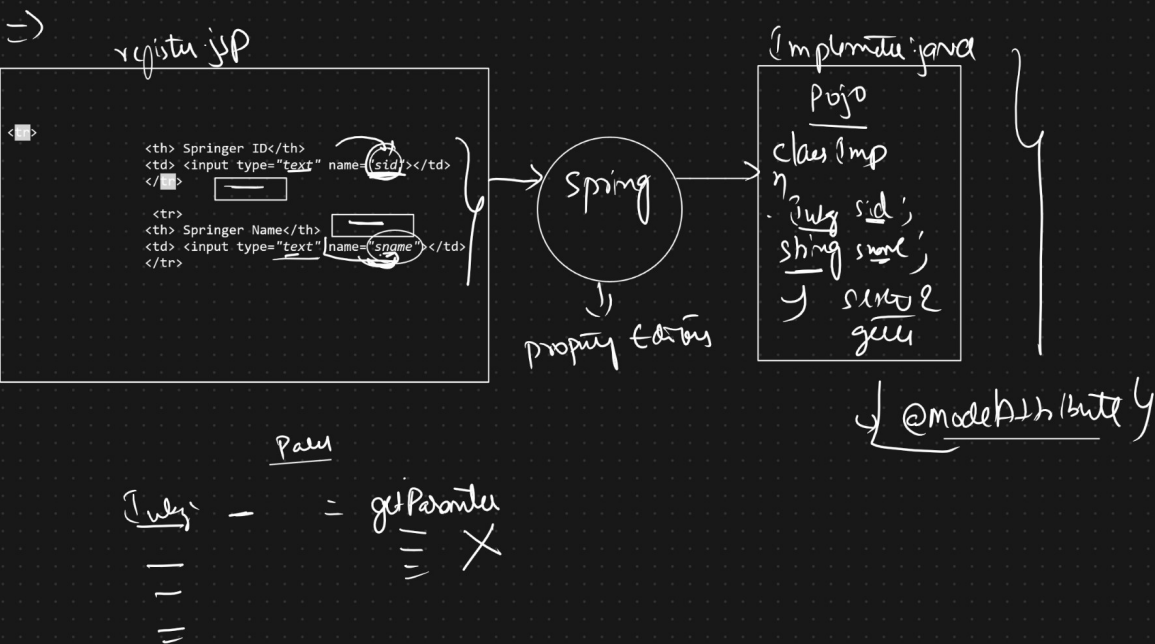 =>
register.jsp
<tr>
<th> Springer ID</th>
<td> <input type="text" name="sid"></td>
</tr>
<tr>
<th> Springer Name</th>
<td> <input type="text" name="sname"></td>
</tr>
Spring
property Editors
java
Pojo
class Imp
sid ;
String sname ;
@modelAttribute
= getParameter